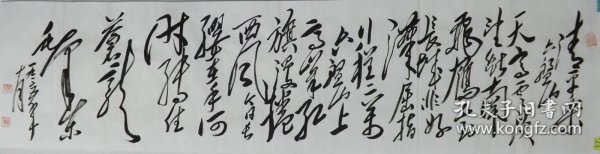 清平乐
六盘山
天高云淡
望断南
飞雁不到
长城非好
汉屈指
行程二万
六盘山上
高峰红
旗漫捲
西风今日长
缨在手何
时缚住
苍龙
毛泽东
一九三五年十
十月
孔夫子旧书网
www.kongfz.com